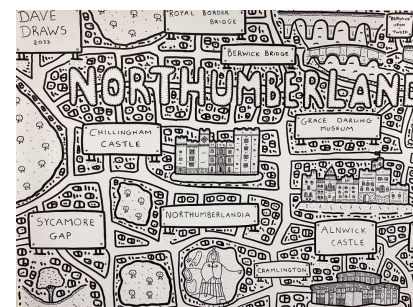 DAVE
DRAWS
2023
ROYAL BORDER
BRIDGE
BERWICK
UPON
TWEED
BERWICK BRIDGE
NORTHUMBERLAN
CHILLINGHAM
CASTLE
GRACE DARLING
MUSEUM
SYCAMORE
GAP
NORTHUMBERLANDIA
ALNWICK
CASTLE
CRAMLINGTON